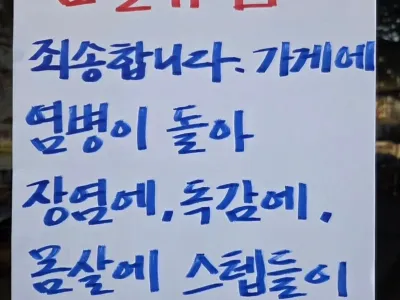 죄송합니다. 가게에
염병이 돌아
장염에, 독감에,
몸살에 스텝들이